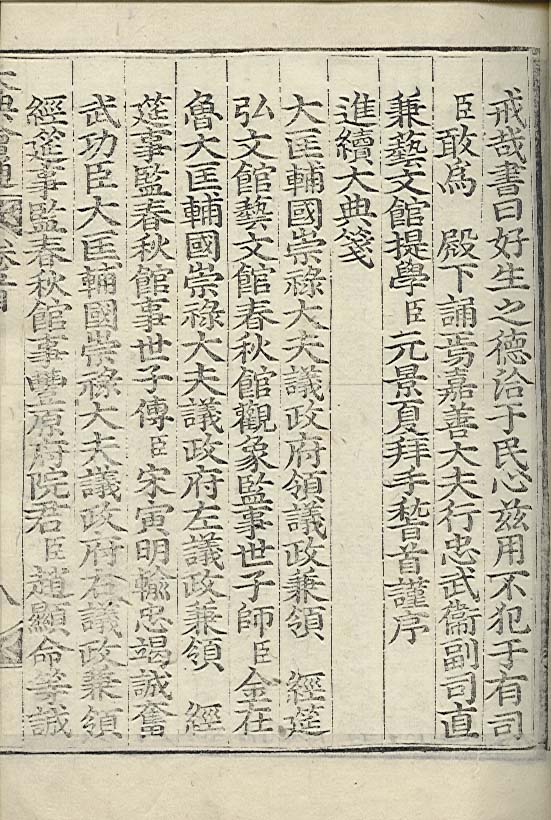 戒哉書曰好生之德洽于民心兹用不犯于有司
臣敢爲 殿下誦焉嘉善大夫行忠武衛副司直
兼藝文館提學臣元景夏拜手稽首謹序
進續大典箋
大匡輔國崇祿大夫議政府領議政兼領 經筵
弘文館藝文館春秋館觀象監事世子師臣金在
魯大匡輔國崇祿大夫議政府左議政兼領 經
筵事監春秋館事世子傅臣宋寅明輸忠竭誠奮
武功臣大匡輔國崇祿大夫議政府右議政兼領
經筵事監春秋館事豐原府院君臣趙顯命等誠
大典會通 卷首 八